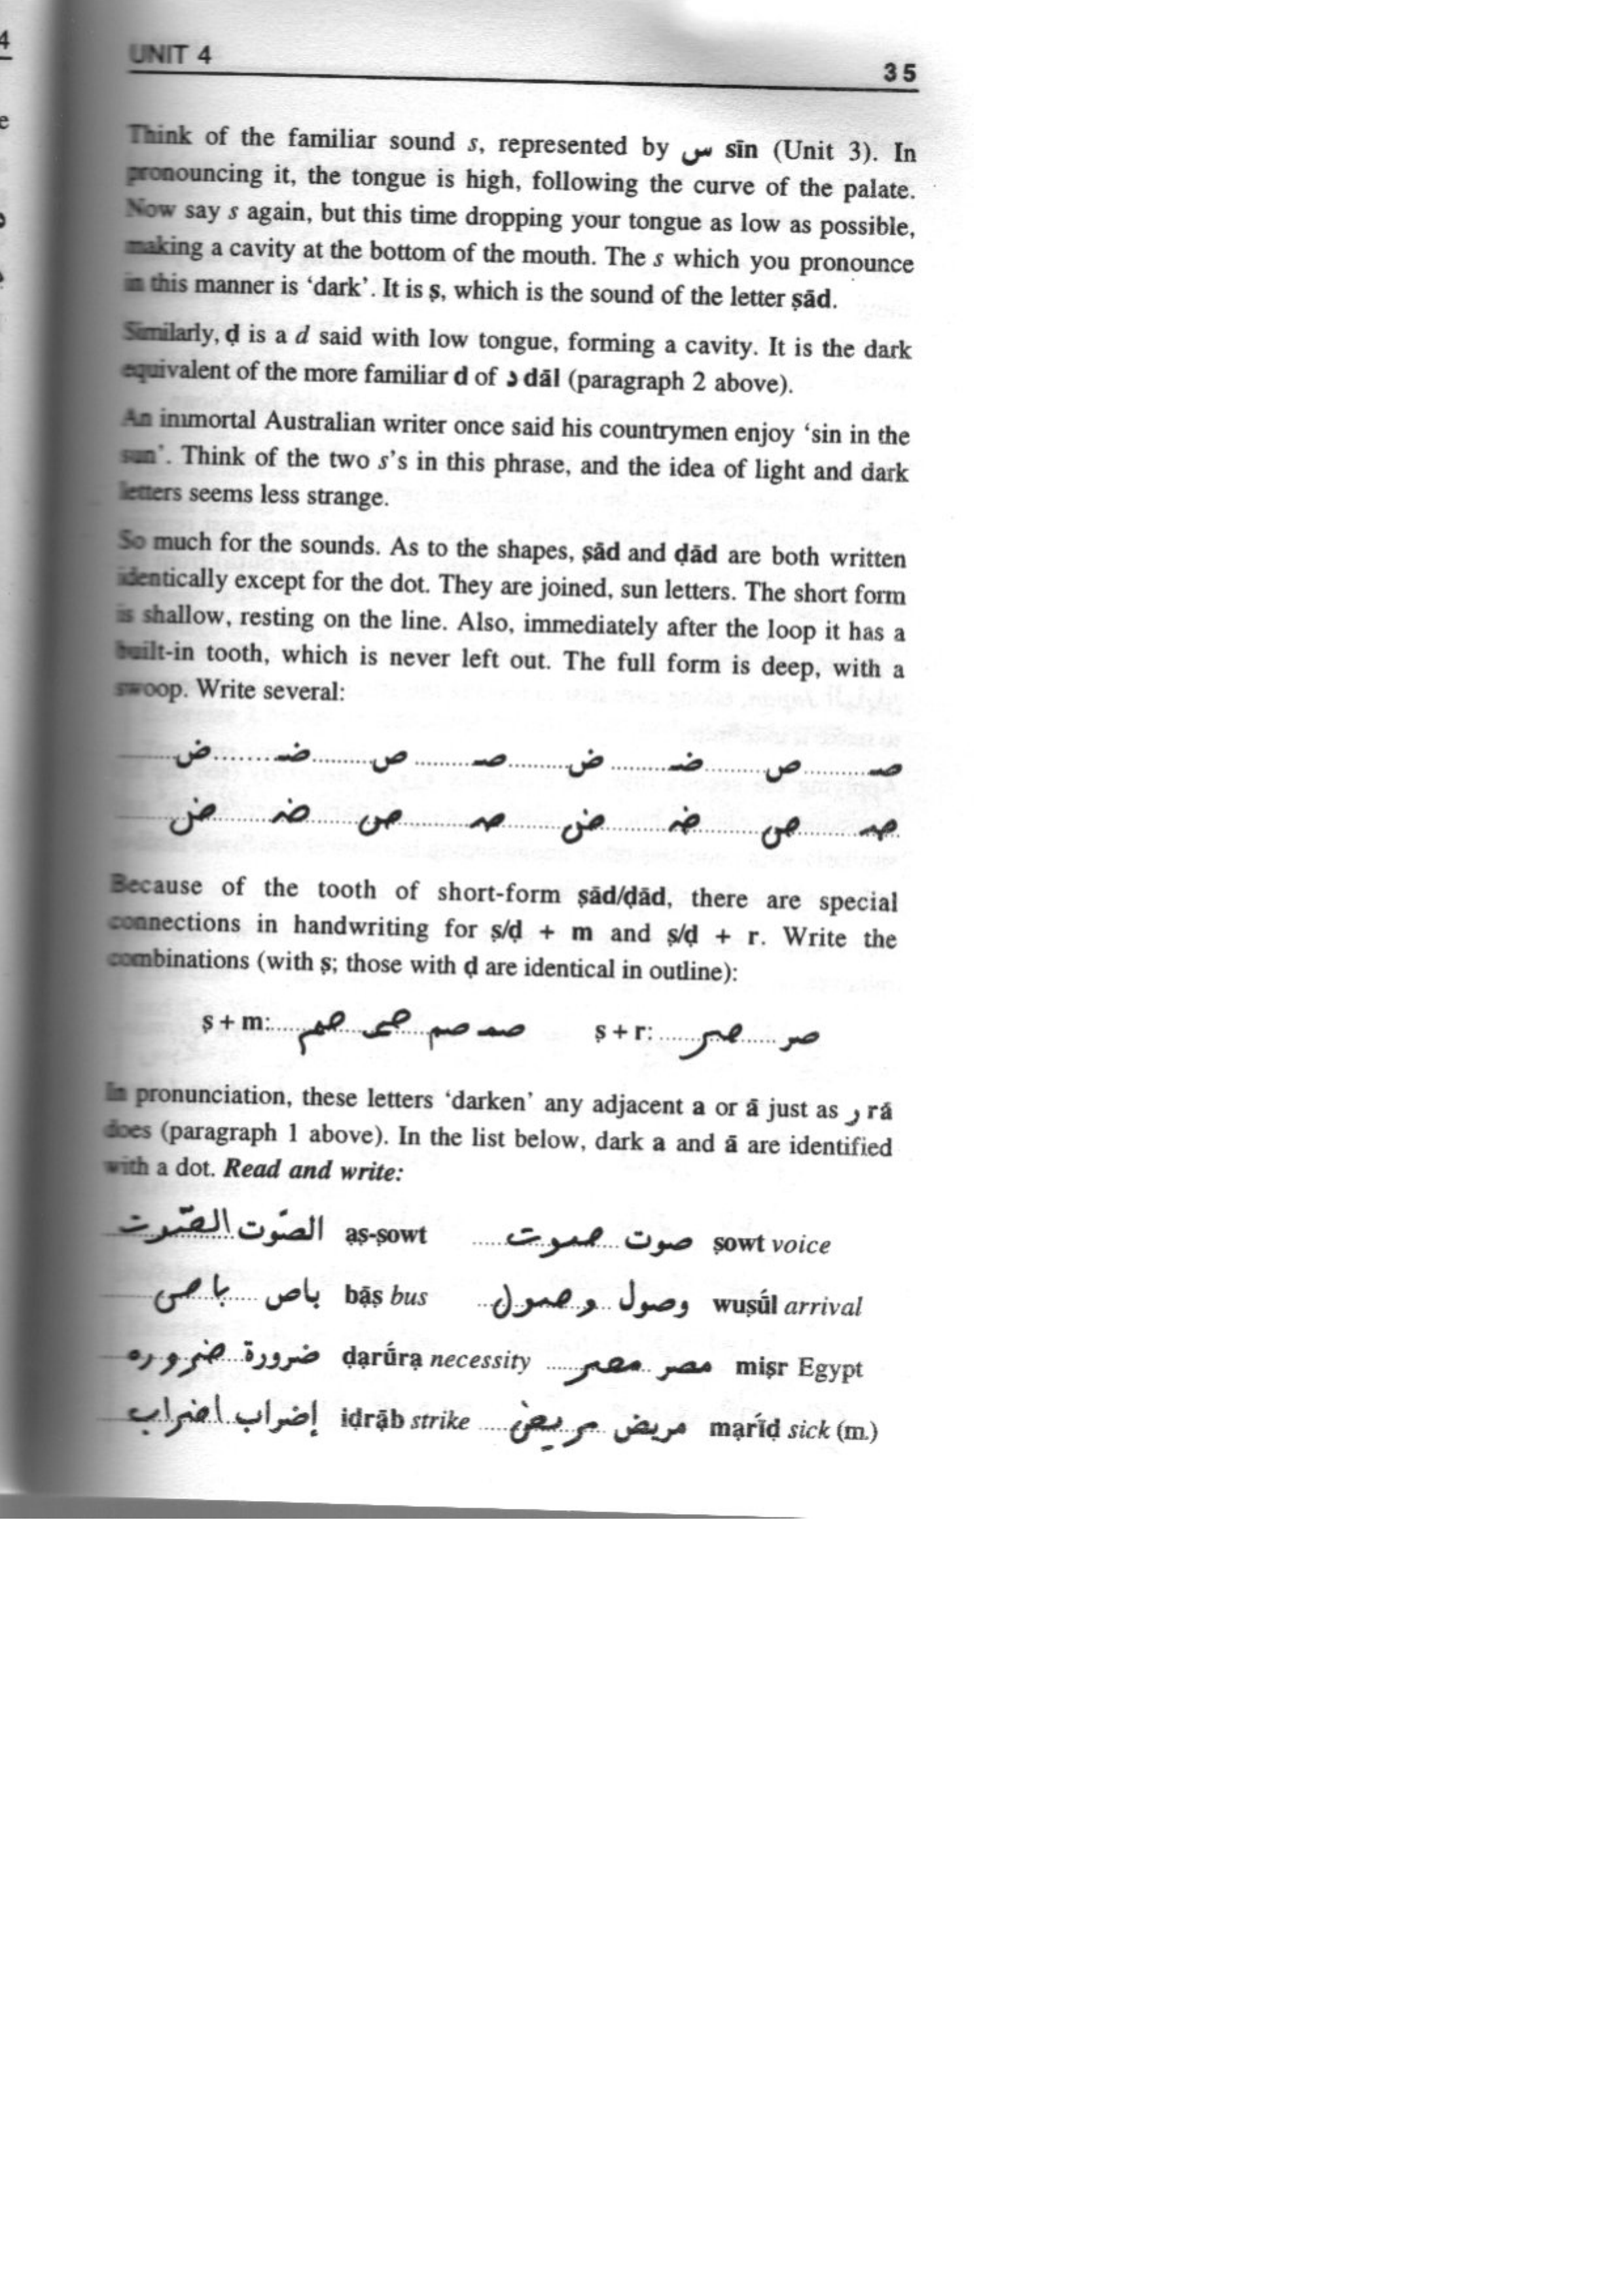 4
UNIT 4
35
Think of the familiar sound s, represented by س sīn (Unit 3). In
pronouncing it, the tongue is high, following the curve of the palate.
Now say s again, but this time dropping your tongue as low as possible,
making a cavity at the bottom of the mouth. The s which you pronounce
in this manner is ‘dark’. It is ṣ, which is the sound of the letter ṣād.
Similarly, ḍ is a d said with low tongue, forming a cavity. It is the dark
equivalent of the more familiar d of د dāl (paragraph 2 above).
An immortal Australian writer once said his countrymen enjoy ‘sin in the
sun’. Think of the two s’s in this phrase, and the idea of light and dark
letters seems less strange.
So much for the sounds. As to the shapes, ṣād and ḍād are both written
identically except for the dot. They are joined, sun letters. The short form
is shallow, resting on the line. Also, immediately after the loop it has a
built-in tooth, which is never left out. The full form is deep, with a
swoop. Write several:
صـ ص ضـ ض صـ ص ضـ ض
صـ ص ضـ ض صـ ص ضـ ض
Because of the tooth of short-form ṣād/ḍād, there are special
connections in handwriting for ṣ/ḍ + m and ṣ/ḍ + r. Write the
combinations (with ṣ; those with ḍ are identical in outline):
ṣ + m: صمـ صم صمـ صم ṣ + r: صر صر
In pronunciation, these letters ‘darken’ any adjacent a or ā just as ر rá
does (paragraph 1 above). In the list below, dark a and ā are identified
with a dot. Read and write:
الصّوت الصّوت ạṣ-ṣowt صوت صوت ṣowt voice
باص باص bạ̄ṣ bus وصول وصول wuṣū́l arrival
ضروره ضرورة ḍạrū́rạ necessity مصر مصر miṣr Egypt
اضراب إضراب iḍrạ̄b strike مريض مريض mạrī́ḍ sick (m.)